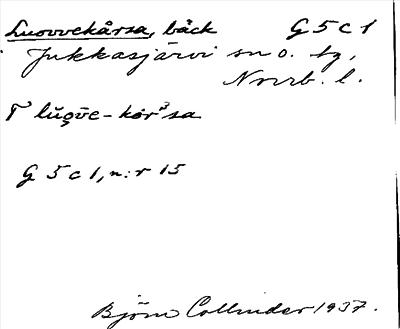 Luovvekårsa, bäck G 5 c 1
Jukkasjärvi sn o. tg,
Norrb. l.
G 5 c 1, n:r 15
Björn Collinder 1937.